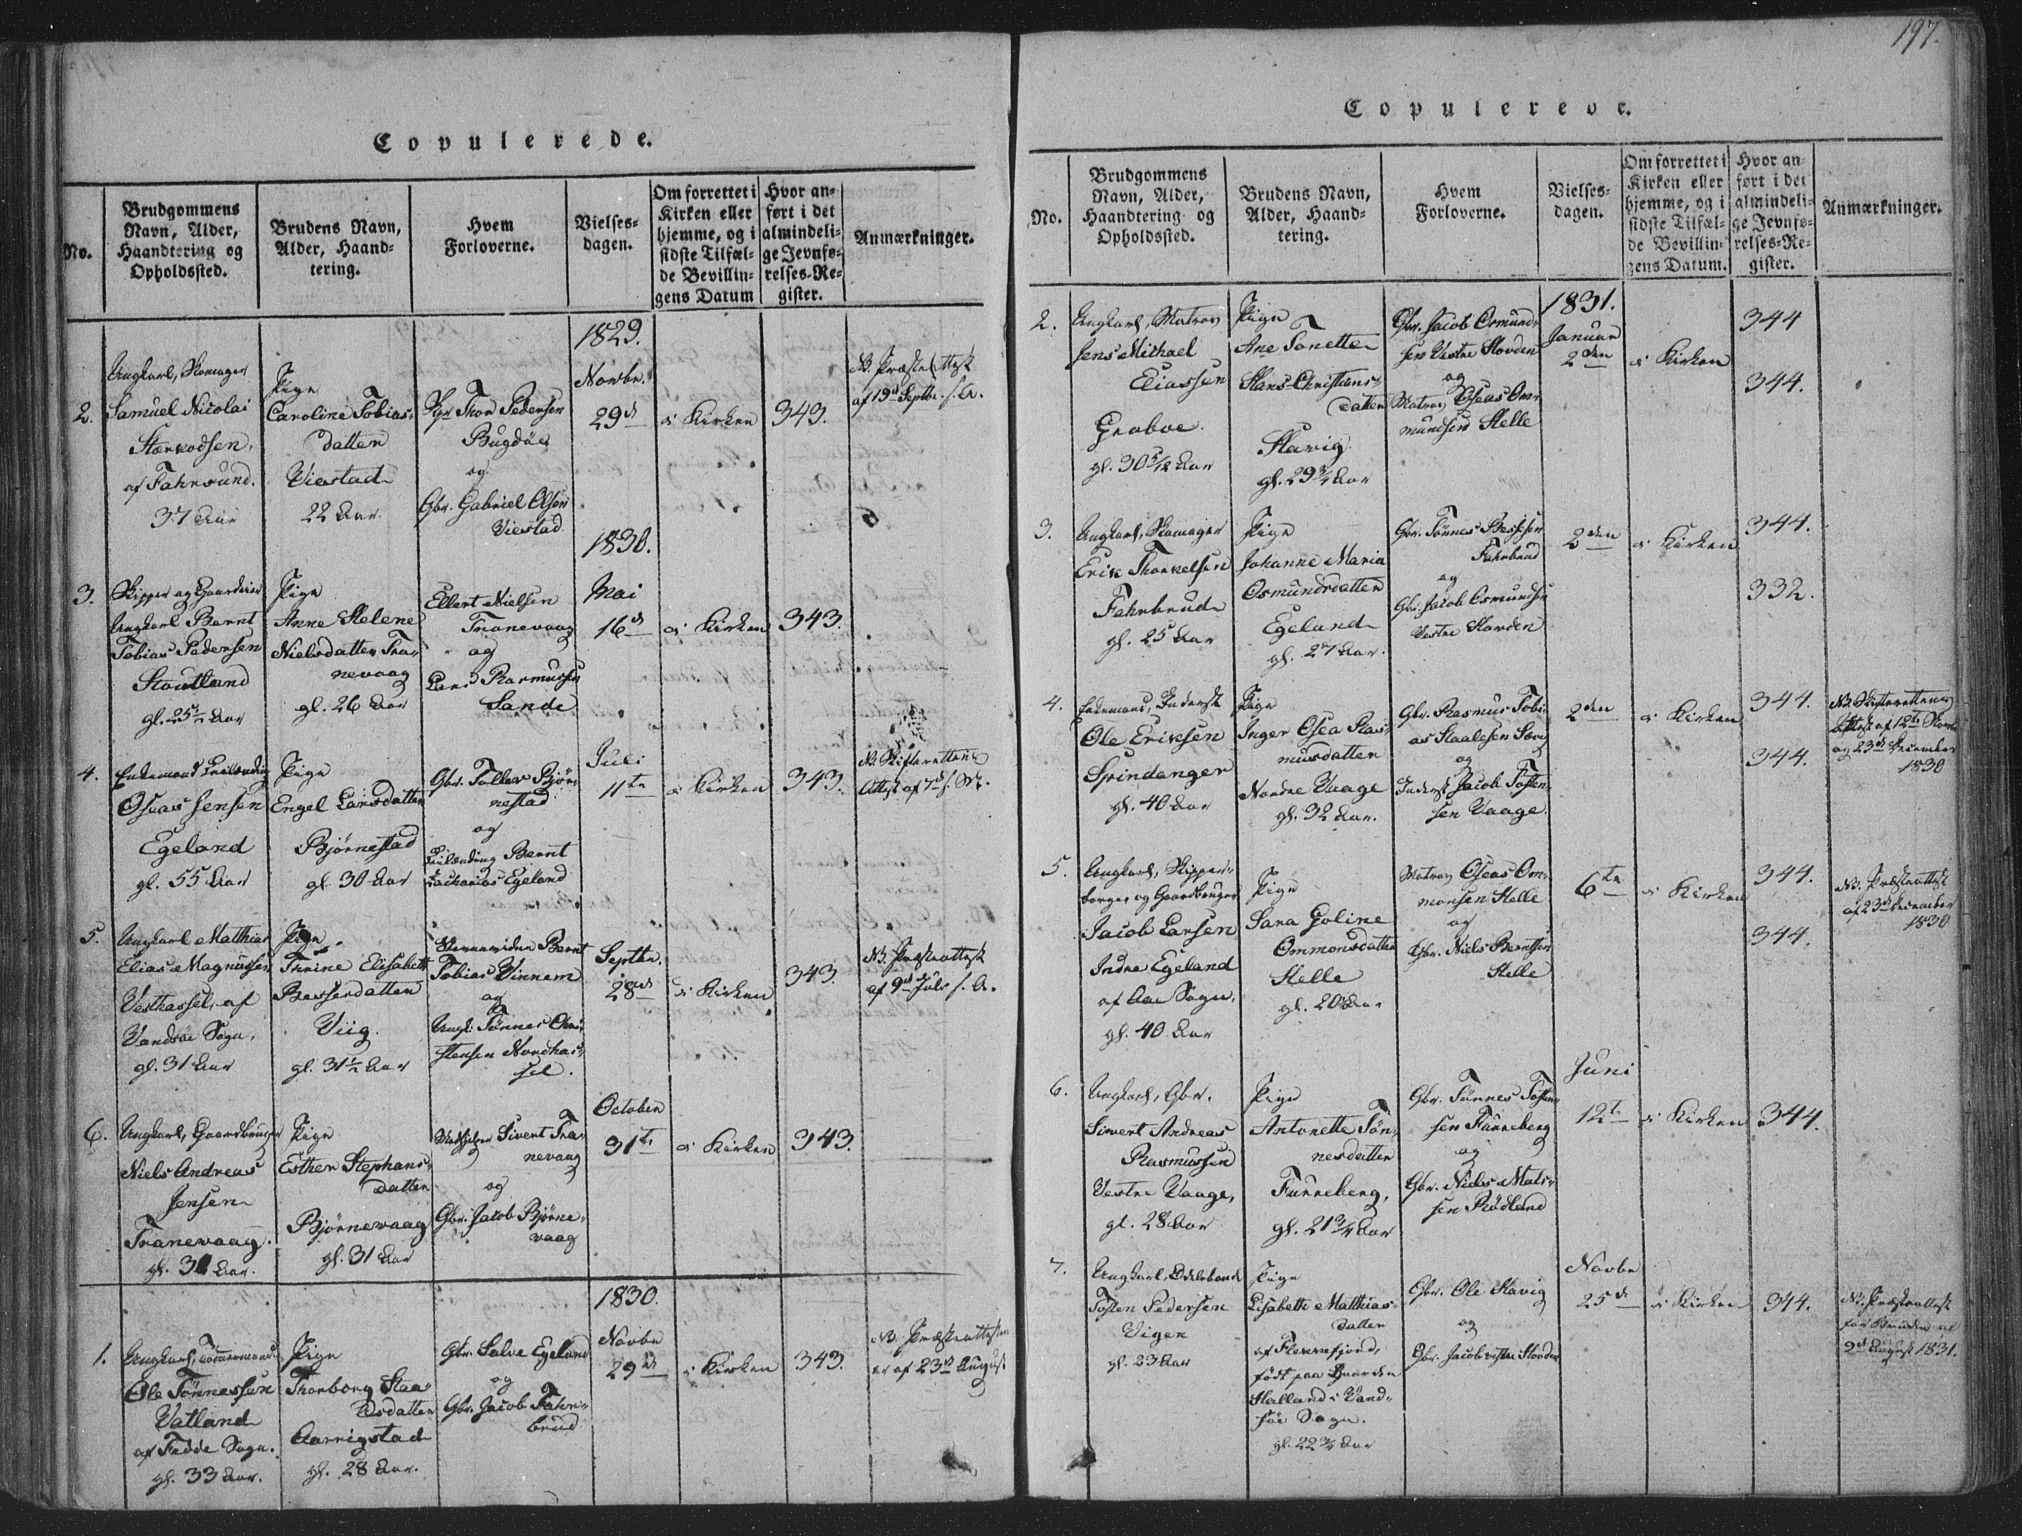 Copulerede.
No.
Brudgommens
Navn, Alder,
Haandtering og
Opholdssted.
Brudens Navn,
Alder, Haand-
tering.
Hvem
Forloverne.
Vielses-
dagen.
Om forrettet i
Kirken eller
hjemme, og i
sidste Tilfæl-
de Bevillin-
gens Datum
Hvor an-
ført i det
almindeli-
ge Jevnfø-
relses-Re-
gister.
Anmærkninger.
2.
Ungkarl,
Samuel Nicolai
af Fahrsund.
37 Aar
Pige
Caroline Tobias-
datter
Vierstad
22 Aar.
Thor Pedersen
Bugdøe
og
Gbr. Gabriel Olsen
Vierstad.
1829.
Novbr.
29d
i Kirken
343.
N. Præste Attest
af 19d Septbr. s. A.
3.
Skipper og Gaardeier
Ungkarl Bernt
Tobias Pedersen
Stoutland
gl. 25½ Aar
Pige
Anne Helene
Nielsdatter Tra-
nevaag
gl. 26 Aar
Ellert Nielsen
Tranevaag
og
Lars Rasmussen
Sande
1830.
Mai
16d
i Kirken
343.
4.
Enkemand
Oseas Jensen
Egeland
gl. 55 Aar
Pige
Engel Larsdatter
Bjørnestad
gl. 30 Aar
Gbr. Tallev Bjør-
nestad
og
Bernt
Zacharias Egeland
Juli
11te
i Kirken
343.
N. Skifterettens
Attest af 7d s. M.
5.
Ungkarl Matthias
Elias Magnussen
Vesthassel af
Vandsøe Sogn,
gl. 31 Aar
Pige
Thrine Elisabeth
Bessesdatter
Viig.
gl. 31½ Aar
Bernt
Tobias Vinnem
og
Ungk. Tønnes Chri-
stensen Nordhas-
sel.
Septbr.
28d
i Kirken
343.
N. Præsteattest
af 9d Juli s. A.
6.
Ungkarl, Gaardbruger
Niels Andreas
Jensen
Tranevaag.
gl. 31 Aar.
Pige
Esther Stephans-
datter
Bjørnevaag
gl. 31 Aar
Sivert Tra-
nevaag
og
Gbr. Jacob Bjørne-
vaag
October
31te
i Kirken
343.
1.
Ungkarl, Tømmermand
Ole Tønnessen
Vatland
af Fedde Sogn.
gl. 33 Aar.
Pige
Thorborg Staa-
lesdatter
Aarrigstad
gl. 28 Aar.
Gbr. Salve Egeland
og
Gbr. Jacob Fahre-
brud
1830.
Novbr
29d
i Kirken
343.
N. Præsteattesten
er af 23d August
197.
Copulerede.
No.
Brudgommens
Navn, Alder,
Haandtering og
Opholdssted.
Brudens Navn,
Alder, Haand-
tering.
Hvem
Forloverne.
Vielses-
dagen.
Om forrettet i
Kirken eller
hjemme, og i
sidste Tilfæl-
de Bevillin-
gens Datum.
Hvor an-
ført i det
almindeli-
ge Jevnfø-
relses-Re-
gister.
Anmærkninger.
2.
Ungkarl, Matros
Jens Michael
Eliassen
Groboe.
gl. 30 5/12 Aar
Pige
Ane Tonette
Hans-Christians-
datter
Slavig.
gl. 29¾ Aar
Gbr. Jacob Osmund-
sen Vestre Hovden
og
Matros Oseas Om-
mundsen Helle
1831.
Januar
2den
i Kirken
344
344.
3.
Ungkarl,
Erik Thorkelsen
Fahrbrud
gl. 25 Aar
Pige
Johanne Maria
Osmundsdatter
Egeland
gl. 27 Aar.
Gbr. Tønnes Bessesen
Fahrbrud
og
Gbr. Jacob Osmundsen
Vestre Hovden
2den
i Kirken
344.
332.
4.
Enkemand, Inderst
Ole Eriksen
Sprindanger
gl. 40 Aar
Pige
Inger Osea Ras-
musdatter
Nordre Vaage
gl. 32 Aar.
Gbr. Rasmus Tobi-
as Staalesen
og
Inderst Jacob Tosten-
sen Vaage.
2den
i Kirken
344.
344.
N. Skifterettens
Attest af 12te
og 23d December
1830
5.
Ungkarl, Skipper-
borger og Gaardbruger
Jacob Larsen
Indre Egeland
af Aae Sogn,
gl. 40 Aar
Pige
Sara Goline
Ommonsdatter
Helle
gl. 20 Aar
Matros Oseas Om-
monsen Helle
og
Gbr. Niels Berntsen
Helle
6te
i Kirken
344.
344.
N. Præsteattest
af 23d December
1830
6.
Ungkarl, Gbr.
Sivert Andreas
Rasmussen
Vestre Vaage,
gl. 28 Aar
Pige
Antonette Tøn-
nesdatter
Furreberg,
gl. 21¾ Aar
Gbr. Tønnes Tosten-
sen Furreberg
og
Gbr. Niels Mats-
sen Rødland
Juni
12te
i Kirken
344.
7.
Ungkarl, Odelsbonde
Tosten Pedersen
Vigen
gl. 23 Aar
Pige
Lisabeth Matthias-
datter
af Flekkefjord,
født paa Gaarden
Halland i Vand-
søe Sogn.
gl. 22¾ Aar
Gbr. Ole Slavig
og
Gbr. Jacob vestre Hovden
Novbr
25d
i Kirken
344.
N. Præsteattest
for Bruden af
9d August 1831.